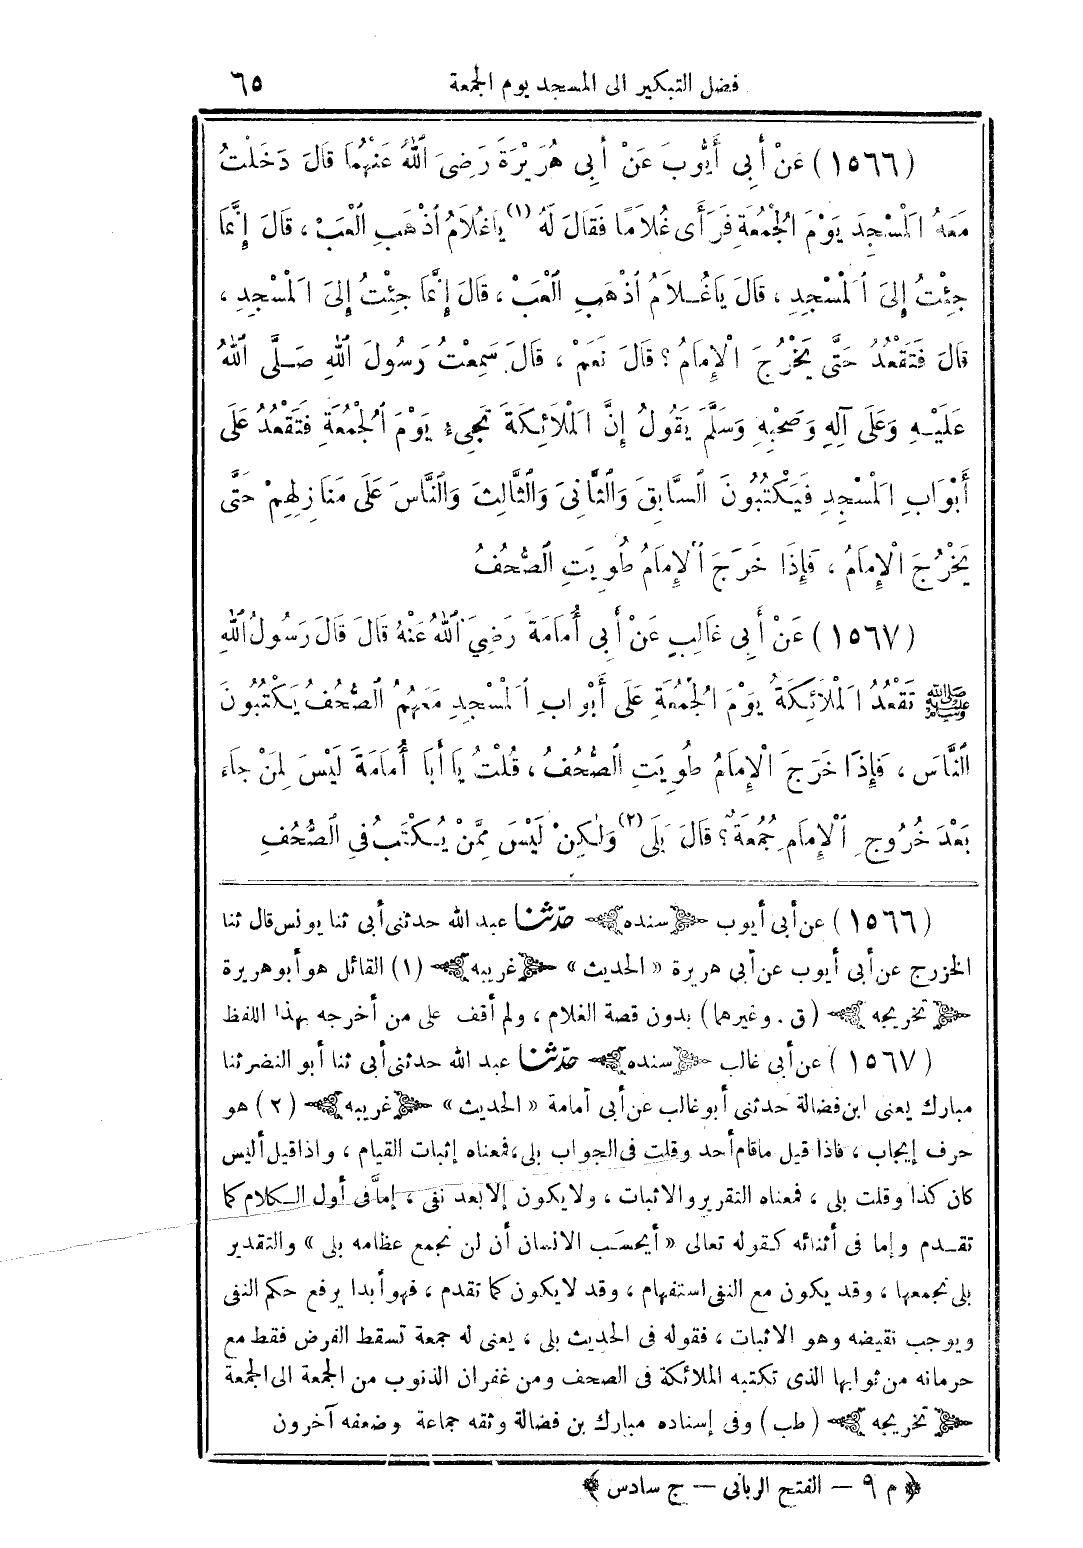 فضل التبكير الى المسجد يوم الجمعة ٦٥
(١٥٦٦) عَنْ أَبِى أَيُّوبَ عَنْ أَبِى هُرَيْرَةَ رَضِىَ اللهُ عَنْهُمَا قَالَ دَخَلْتُ
مَعَهُ الْمَسْجِدَ يَوْمَ الْجُمُعَةِ فَرَأَى غُلَامًا فَقَالَ لَهُ (١) يَاغُلَامُ أذْهَبِ الْعَبْ ، قَالَ إِنَّمَا
جِئْتُ إِلَى الْمَسْجِدِ ، قَالَ يَاغُلَامُ أذْهَبِ الْعَبْ ، قَالَ إِنَّمَا جِئْتُ إِلَى الْمَسْجِدِ ،
قَالَ فَتَقْعُدُ حَتَّى يَخْرُجَ الْإِمَامُ ؟ قَالَ نَعَمْ ، قَالَ سَمِعْتُ رَسُولَ اللهِ صَلَّى اللهُ
عَلَيْهِ وَعَلَى آلِهِ وَصَحْبِهِ وَسَلَّمَ يَقُولُ إِنَّ الْمَلَائِكَةَ تَجِىءُ يَوْمَ الْجُمُعَةِ فَتَقْعُدُ عَلَى
أَبْوَابِ الْمَسْجِدِ فَيَكْتُبُونَ السَّابِقَ وَالثَّانِىَ وَالثَّالِثَ وَالنَّاسَ عَلَى مَنَازِلِهِمْ حَتَّى
يَخْرُجَ الْإِمَامُ ، فَإِذَا خَرَجَ الْإِمَامُ طُوِيَتِ الصُّحُفُ
(١٥٦٧) عَنْ أَبِى غَالِبٍ عَنْ أَبِى أُمَامَةَ رَضِيَ اللهُ عَنْهُ قَالَ قَالَ رَسُولُ اللهِ
ﷺ تَقْعُدُ الْمَلَائِكَةُ يَوْمَ الْجُمُعَةِ عَلَى أَبْوَابِ الْمَسْجِدِ مَعَهُمُ الصُّحُفُ يَكْتُبُونَ
النَّاسَ ، فَإِذَا خَرَجَ الْإِمَامُ طُوِيَتِ الصُّحُفُ ، قُلْتُ يَا أَبَا أُمَامَةَ لَيْسَ لِمَنْ جَاءَ
بَعْدَ خُرُوجِ الْإِمَامِ جُمُعَةٌ ؟ قَالَ بَلَى (٢) وَلٰكِنْ لَيْسَ مِمَّنْ يُكْتَبُ فِى الصُّحُفِ
(١٥٦٦) عن أبى أيوب ﴿ سنده ﴾ حدّثنا عبد الله حدثنى أبى ثنا يونس قال ثنا
الخزرج عن أبى أيوب عن أبى هريرة « الحديث » ﴿ غريبه ﴾ (١) القائل هو أبو هريرة
﴿ تخريجه ﴾ (ق . وغيرهما) بدون قصة الغلام ، ولم أقف على من أخرجه بهذا اللفظ
(١٥٦٧) عن أبى غالب ﴿ سنده ﴾ حدّثنا عبد الله حدثنى أبى ثنا أبو النضر ثنا
مبارك يعنى ابن فضالة حدثنى أبو غالب عن أبى أمامة « الحديث » ﴿ غريبه ﴾ (٢) هو
حرف إيجاب ، فاذا قيل ماقام أحد وقلت فى الجواب بلى ، فمعناه إثبات القيام ، واذا قيل أليس
كان كذا وقلت بلى ، فمعناه التقرير والاثبات ، ولا يكون إلا بعد نفى ، إما فى أول الكلام كما
تقدم وإما فى أثنائه كقوله تعالى « أيحسَب الانسان أن لن نجمع عظامه بلى » والتقدير
بلى نجمعها ، وقد يكون مع النفى استفهام ، وقد لا يكون كما تقدم ، فهو أبدا يرفع حكم النفى
ويوجب نقيضه وهو الاثبات ، فقوله فى الحديث بلى ، يعنى له جمعة تسقط الفرض فقط مع
حرمانه من ثوابها الذى تكتبه الملائكة فى الصحف ومن غفران الذنوب من الجمعة الى الجمعة
﴿ تخريجه ﴾ (طب) وفى إسناده مبارك بن فضالة وثقه جماعة وضعفه آخرون
﴿ م ٩ — الفتح الربانى — ج سادس ﴾